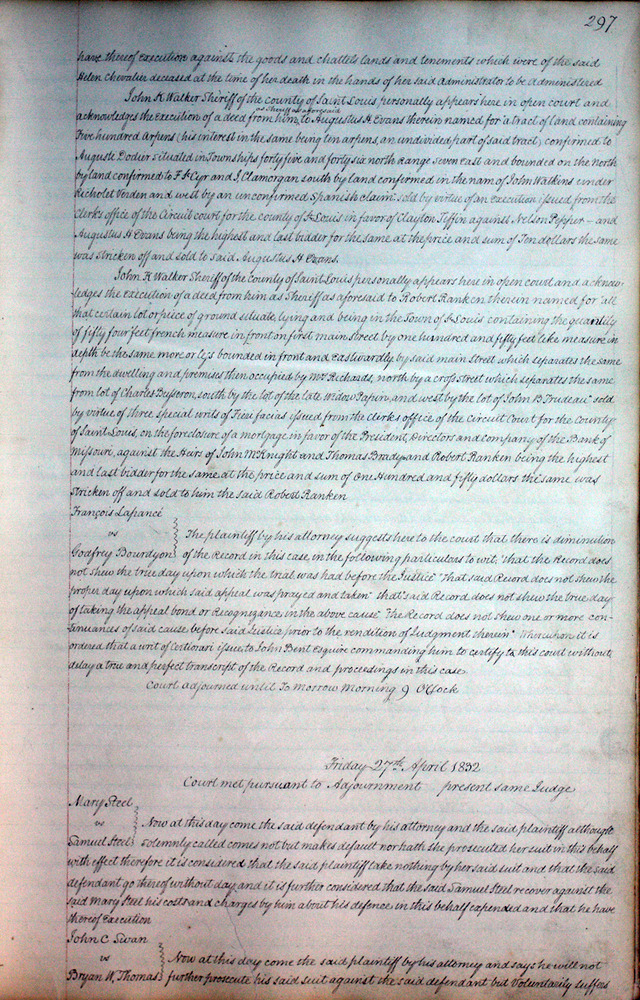 297
have thereof execution against the goods and chattels lands and tenements which were of the said
Helen Chevalier deceased at the time of her death in the hands of her said Administrator to be administered
John K Walker Sheriff of the county of Saint Louis personally appears here in open court and
as Sheriff as aforesaid
acknowledges the Execution of a deed from him to Augustus H Evans therein named for a tract of land containing
Five hundred Arpens (his interest in the same being ten arpens, an undivided part of said tract) confirmed to
Auguste Dodier situated in Townships forty five and forty six north Range Seven East and bounded on the North
by land confirmed to F St Cyr and J. Clamorgan south by land confirmed in the nam of John Watkins under
Richolet Verden and west by an unconfirmed Spanish claim" sold by virtue of an Execution issued from the
Clerks office of the Circuit court for the county of St Louis in favor of Clayton Tiffin against Nelson Pepper – and
Augustus H Evans being the highest and last bidder for the same at the price and sum of Ten dollars the same
was stricken off and sold to said Augustus H Evans.
John K Walker Sheriff of the County of Saint Louis personally appears here in open court and acknow-
ledges the execution of a deed from him as Sheriff as aforesaid to Robert Ranken therein named for "all
that certain lot or piece of ground situate, lying and being in the Town of St Louis containing the quantity
of fifty four feet french measure in front on first main street by one hundred and fifty feet like measure in
depth be the same more or less bounded in front and Eastwardly by said main Street which separates the same
from the dwelling and premises then occupied by Mr Richards, north by a cross street which separates the same
from lot of Charles Bosseron, south by the lot of the late widow Papin, and west by the lot of John B Trudeau" sold
by virtue of three special writs of Fieri facias issued from the Clerks office of the Circuit Court for the County
of Saint Louis, on the foreclosure of a mortgage in favor of the President, Directors and company of the Bank of
Missouri, against the Heir of John McKnight and Thomas Brady and Robert Ranken being the highest
and last bidder for the same at the price and sum of One Hundred and fifty dollars the same was
stricken off and sold to him the said Robert Ranken
François Lapancé
vs The plaintiff by his attorney suggests here to the court that there is diminution
Godfrey Bourdyon of the Record in this case in the following particulars to wit, "that the Record does
not shew the true day upon which the trial was had before the Justice" "That said Record does not shew the
proper day upon which said appeal was prayed and taken" "that said Record does not shew the true day
of taking the appeal bond or Recognizance in the above cause" "The Record does not shew one or more con-
tinuances of said cause before said Justice prior to the rendition of Judgment therein" Whereupon it is
ordered that a writ of Certiorari issue to John Bent Esquire commanding him to certify to this court without
delay a true and perfect transcript of the Record and proceedings in this case
Court adjourned until To morrow Morning 9 OClock
Friday 27th April 1832
Court met pursuant to Adjournment present same Judge
Mary Steel
vs Now at this day come the said defendant by his attorney and the said plaintiff although
Samuel Steel solemnly called comes not but makes default nor hath she prosecuted her suit in this behalf
with effect therefore it is considered that the said plaintiff take nothing by her said suit and that the said
defendant go thereof without day and it is further considered that the said Samuel Steel recover against the
said Mary Steel his costs and charges by him about his defence in this behalf expended and that he have
thereof Execution
John C Swan
vs Now at this day come the said plaintiff by his attorney and says he will not
Bryan W. Thomas further prosecute his said suit against the said defendant but Voluntarily suffers